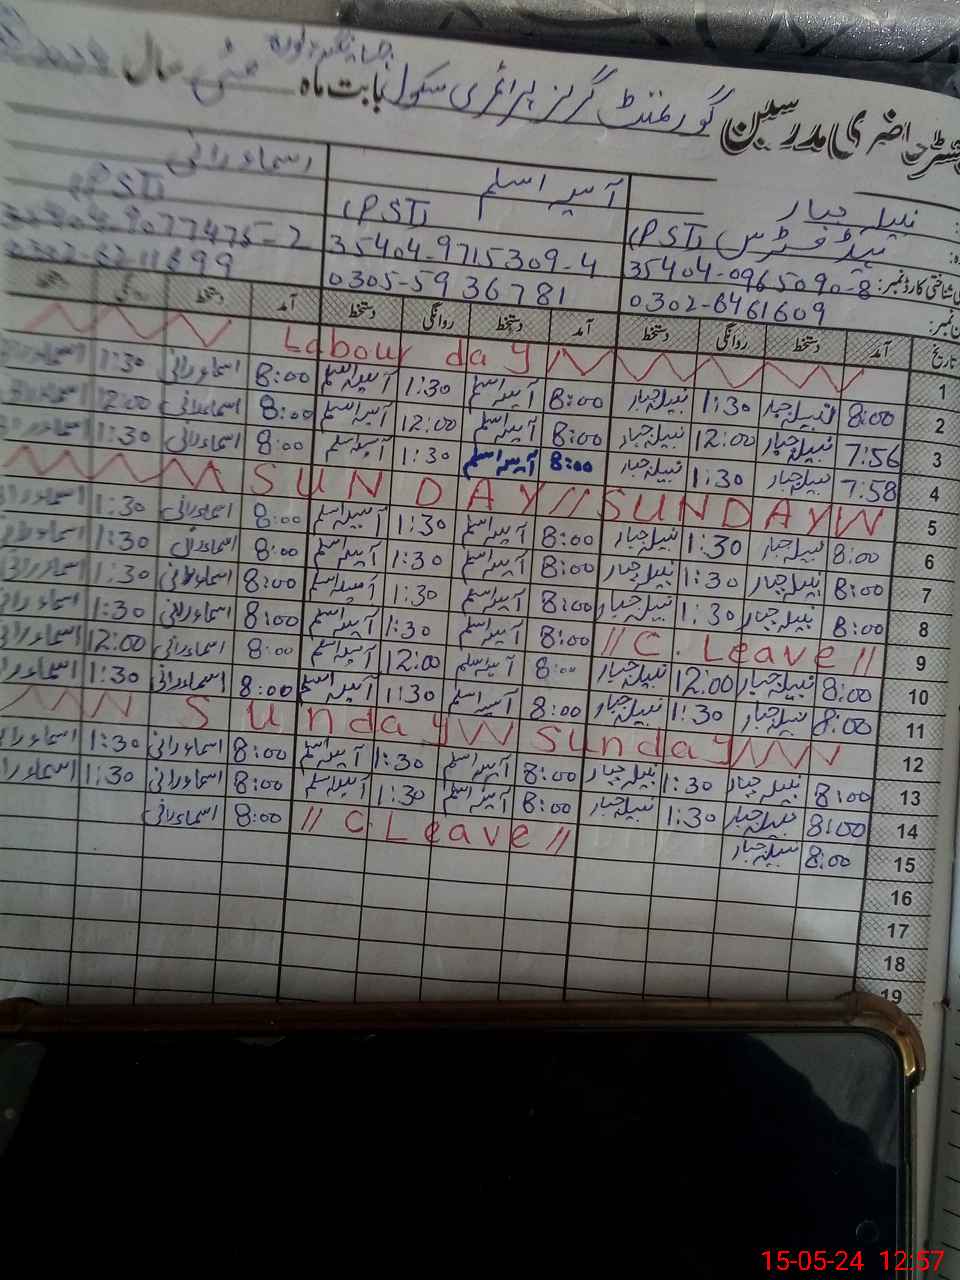 رجسٹر حاضری مدرسین گورنمنٹ گرلز پرائمری سکول بابت ماہ مئی سال
نبیلہ جبار آسیہ اسلم اسماء رانی
ہیڈ مسٹرس (PST) (PST) (PST)
شناختی کارڈ نمبر: 35404-0965090-8 35404-9715309-4 9077475-2
0302-6461609 0305-5936781 0302-6211699
تاریخ آمد دستخط روانگی دستخط آمد دستخط روانگی دستخط آمد دستخط روانگی دستخط
1 Labour day
2 8:00 نبیلہ جبار 1:30 نبیلہ جبار 8:00 آسیہ اسلم 1:30 آسیہ اسلم 8:00 اسماء رانی 1:30 اسماء
3 7:56 نبیلہ جبار 12:00 نبیلہ جبار 8:00 آسیہ اسلم 12:00 آسیہ اسلم 8:00 اسماء رانی 12:00 اسماء
4 7:58 نبیلہ جبار 1:30 نبیلہ جبار 8:00 آسیہ اسلم 1:30 آسیہ اسلم 8:00 اسماء رانی 1:30 اسماء
5 SUNDAY // SUNDAY
6 8:00 نبیلہ جبار 1:30 نبیلہ جبار 8:00 آسیہ اسلم 1:30 آسیہ اسلم 8:00 اسماء رانی 1:30 اسماء
7 8:00 نبیلہ جبار 1:30 نبیلہ جبار 8:00 آسیہ اسلم 1:30 آسیہ اسلم 8:00 اسماء رانی 1:30 اسماء
8 8:00 نبیلہ جبار 1:30 نبیلہ جبار 8:00 آسیہ اسلم 1:30 آسیہ اسلم 8:00 اسماء رانی 1:30 اسماء
9 // C. Leave // 8:00 آسیہ اسلم 1:30 آسیہ اسلم 8:00 اسماء رانی 1:30 اسماء
10 8:00 نبیلہ جبار 12:00 نبیلہ جبار 8:00 آسیہ اسلم 12:00 آسیہ اسلم 8:00 اسماء رانی 12:00 اسماء
11 8:00 نبیلہ جبار 1:30 نبیلہ جبار 8:00 آسیہ اسلم 1:30 آسیہ اسلم 8:00 اسماء رانی 1:30 اسماء
12 Sunday Sunday
13 8:00 نبیلہ جبار 1:30 نبیلہ جبار 8:00 آسیہ اسلم 1:30 آسیہ اسلم 8:00 اسماء رانی 1:30 اسماء
14 8:00 نبیلہ جبار 1:30 نبیلہ جبار 8:00 آسیہ اسلم 1:30 آسیہ اسلم 8:00 اسماء رانی 1:30 اسماء
15 8:00 نبیلہ جبار // C. Leave // 8:00 اسماء رانی
16
17
18
19
15-05-24 12:57